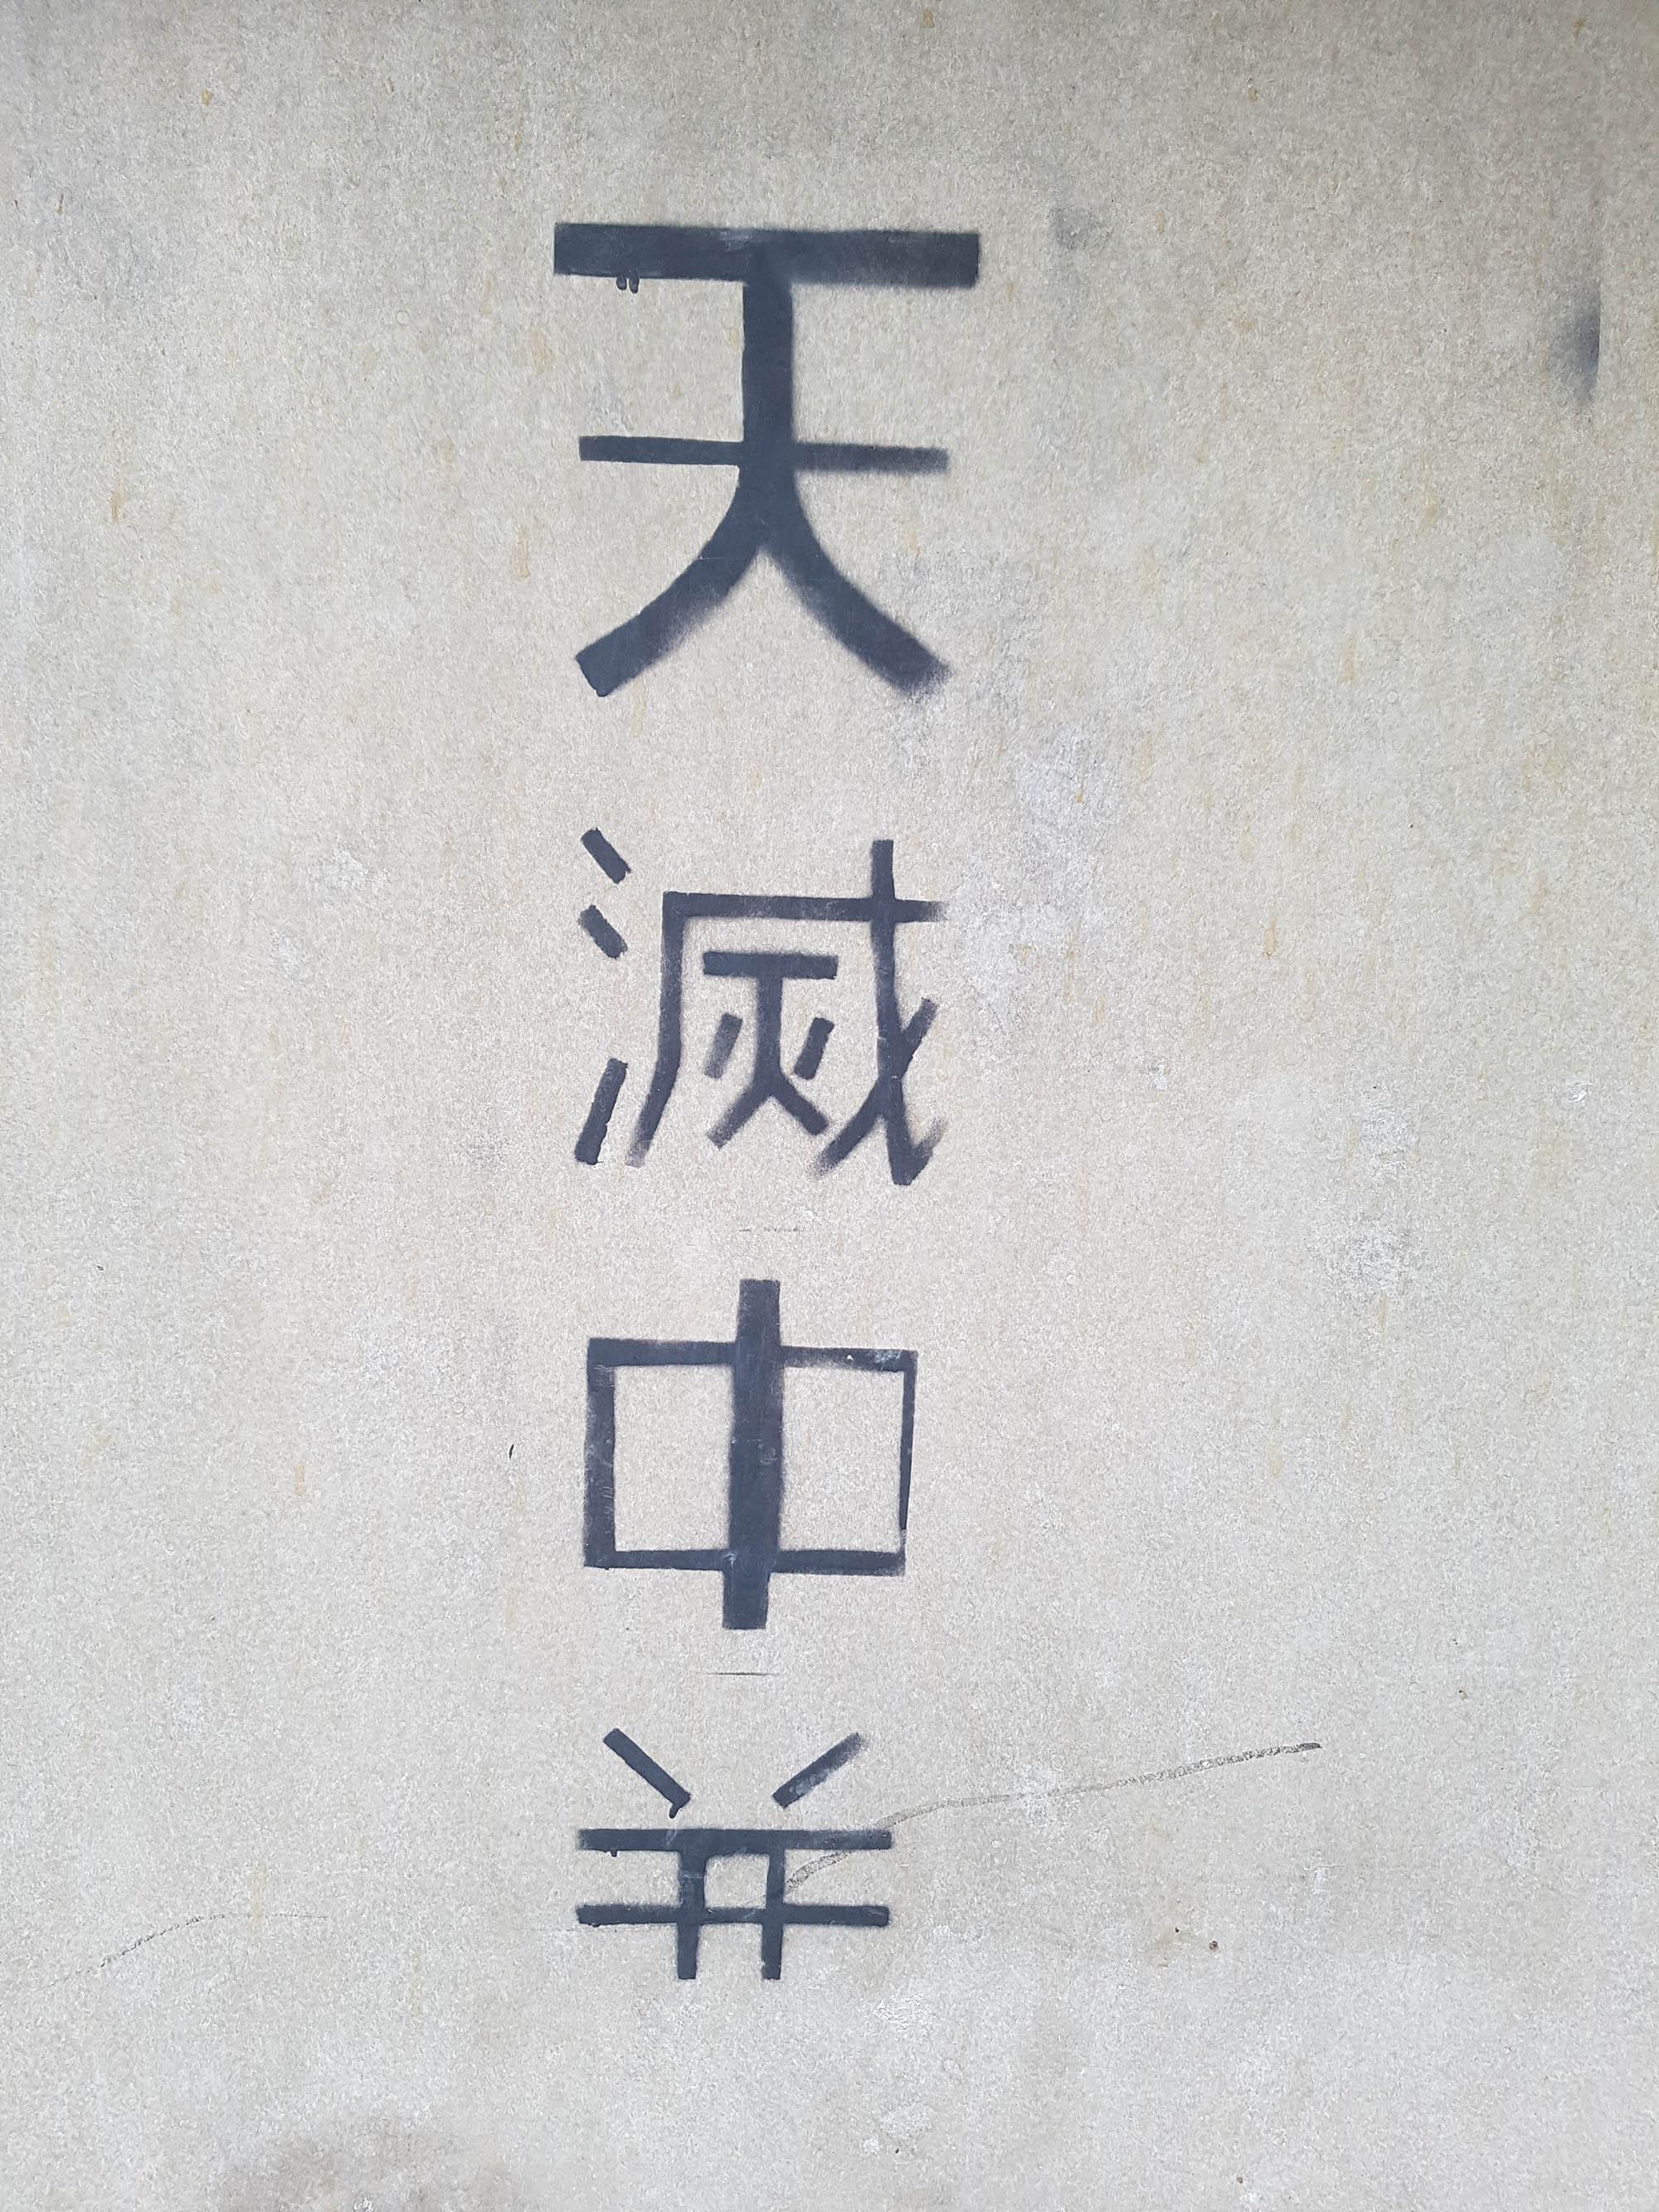 天滅中共